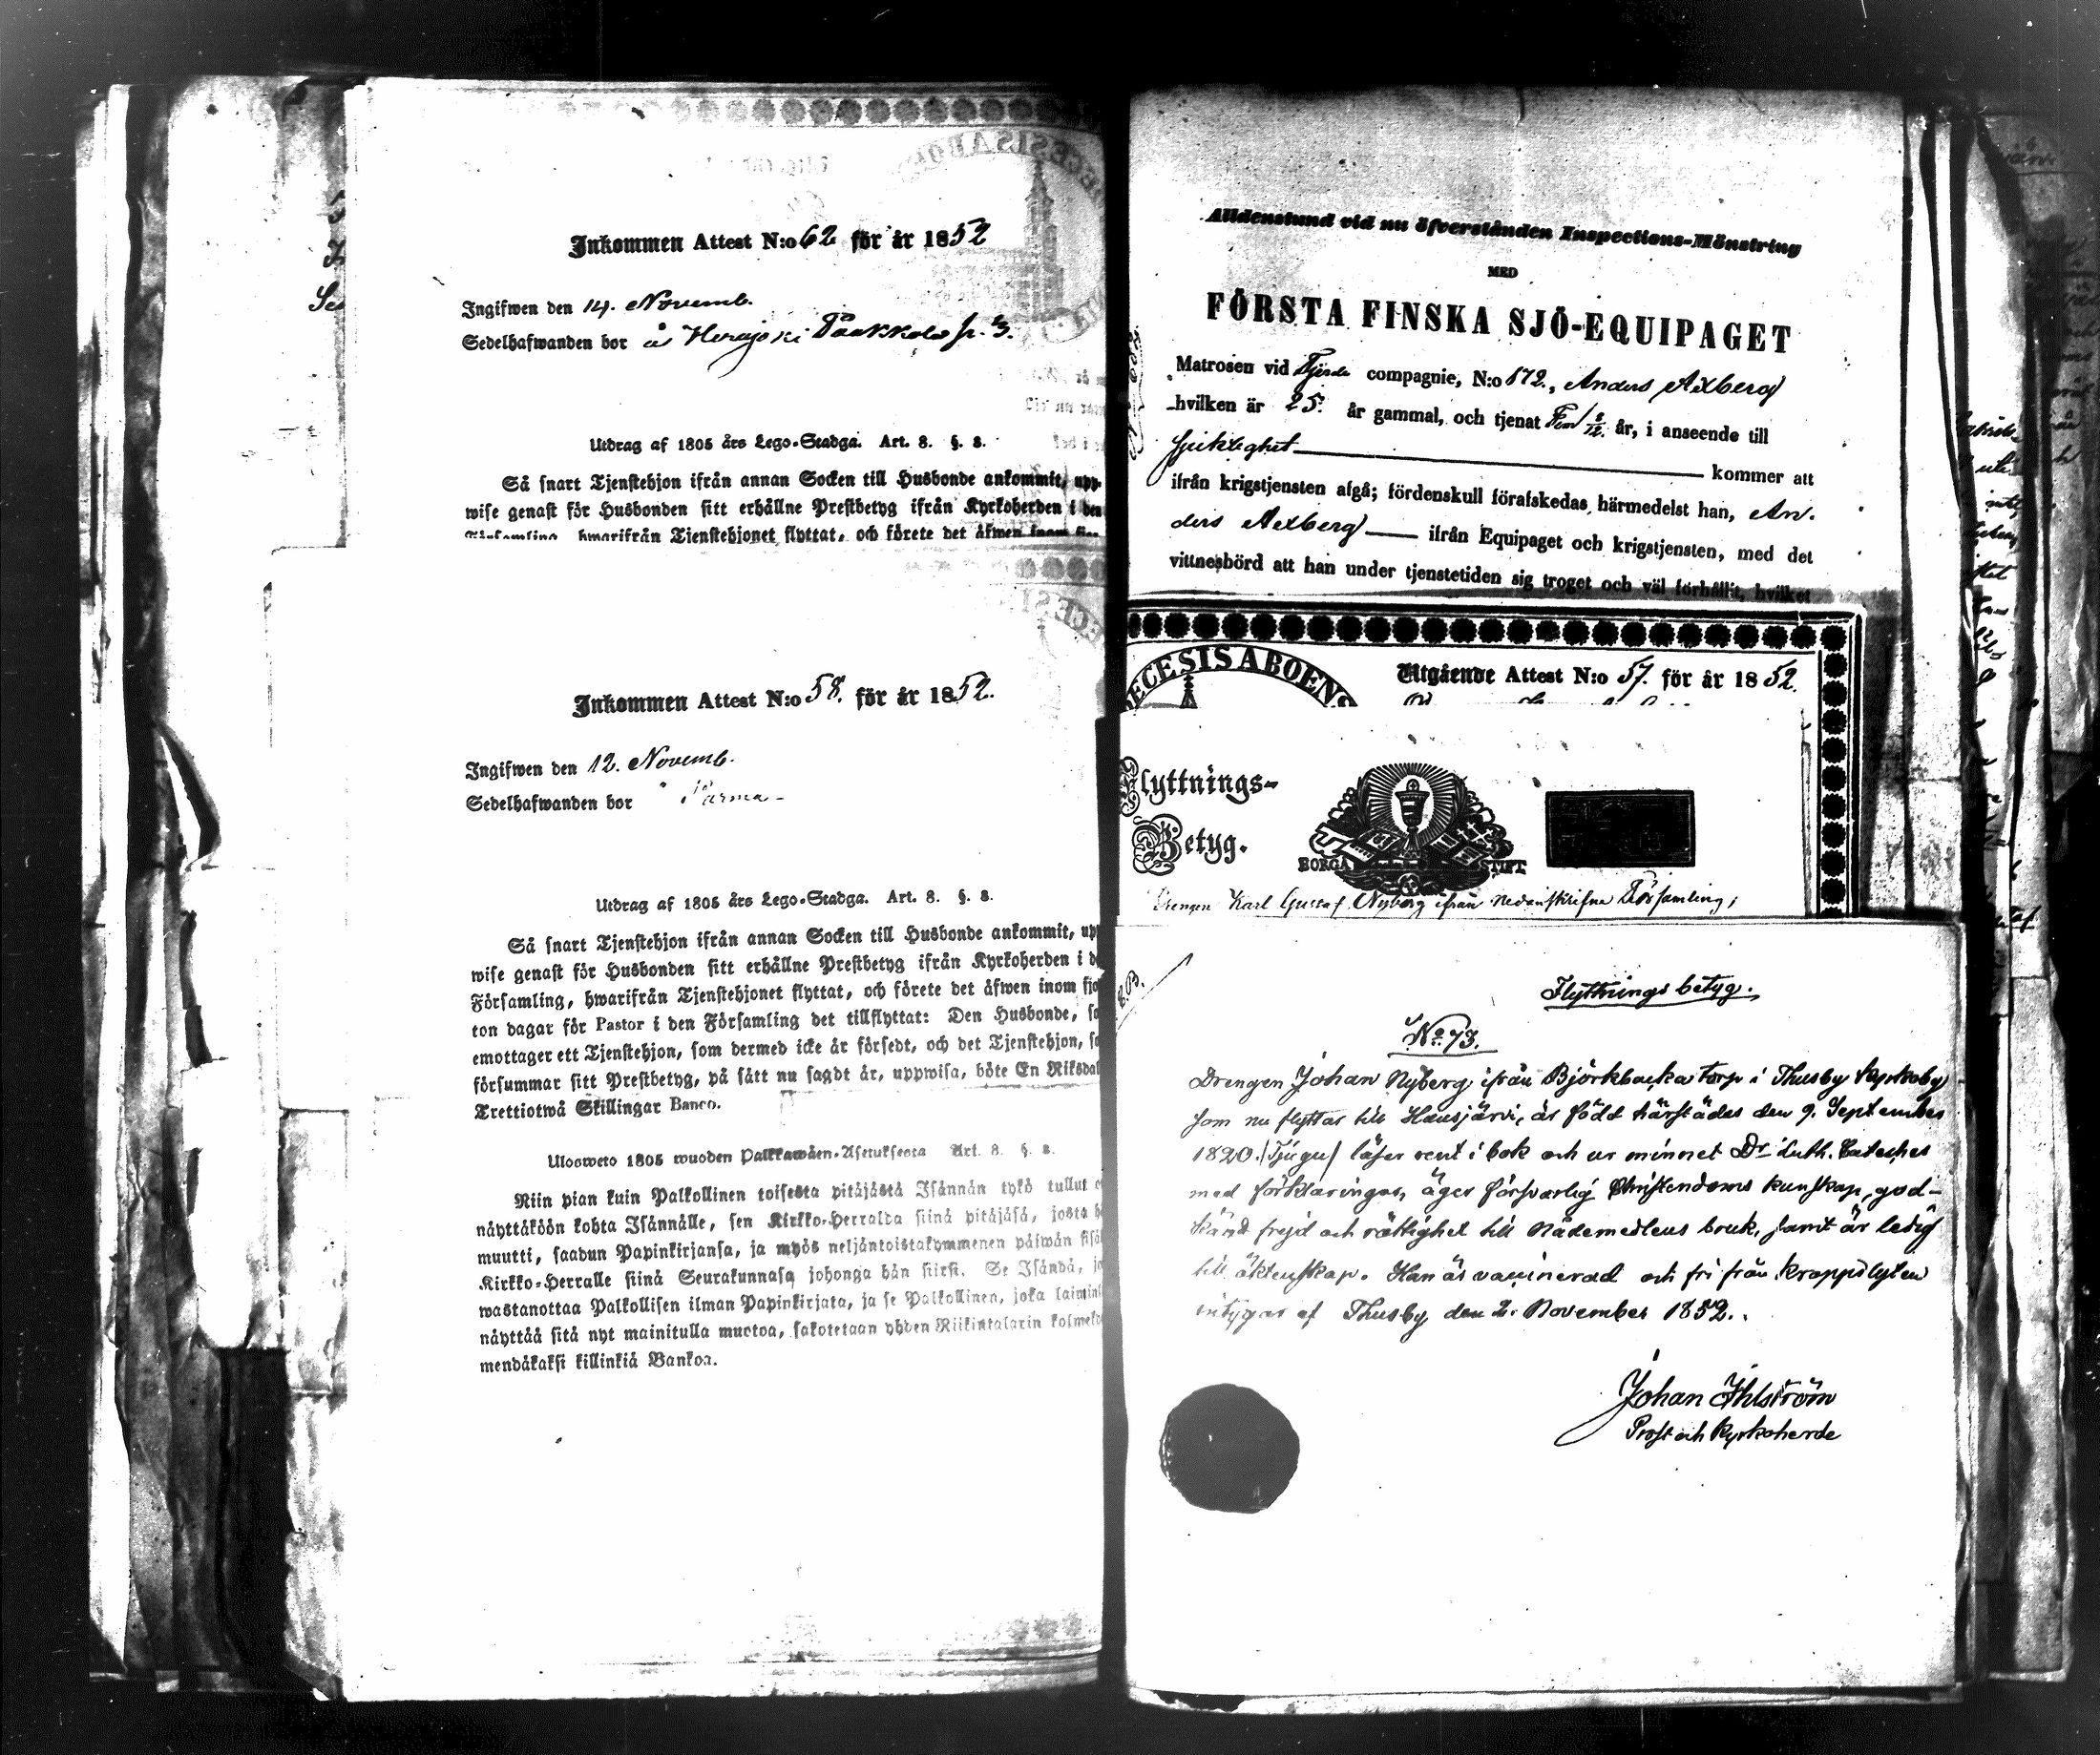 Inkommen Attest N:o 62 för år 1852
Ingifwen den 14. Novemb.
Sedelhafwanden bor å Herajoki
Utdrag af 1805 års Lego-Stadga. Art. 8. §. 8.
Så snart Tjenstehjon ifrån annan Socken till Husbonde ankommit, upp-
wise genast för Husbonden sitt erhållne Prestbetyg ifrån Kyrkoherden i den
Församling, hwarifrån Tjenstehjonet flyttat, och förete det äfwen inom fjor-
Inkommen Attest N:o 58. för år 1852.
Ingifwen den 12. Novemb.
Sedelhafwanden bor Parma
Utdrag af 1805 års Lego-Stadga. Art. 8. §. 8.
Så snart Tjenstehjon ifrån annan Socken till Husbonde ankommit, upp
wise genast för Husbonden sitt erhållne Prestbetyg ifrån Kyrkoherden i d
Församling, hwarifrån Tjenstehjonet flyttat, och förete det äfwen inom fjo
ton dagar för Pastor i den Församling det tillflyttat: Den Husbonde, so
emottager ett Tjenstehjon, som dermed icke är försedt, och det Tjenstehjon, so
försummar sitt Prestbetyg, på sätt nu sagdt är, uppwisa, böte En Riksdal
Trettiotwå Skillingar Banco.
Ulosweto 1805 wuoden Palkkawäen-Asetuksesta Art. 8. §. 8.
Niin pian kuin Palkollinen toisesta pitäjästä Isännän tykö tullut
näyttäköön kohta Isännälle, sen Kirkko-Herralda siinä pitäjäsä, josta hä
muutti, saadun Papinkirjansa, ja myös neljäntoistakymmenen päiwän sisä
Kirkko-Herralle siinä Seurakunnasa johonga hän siirsi. Se Isändä, jo
wastanottaa Palkollisen ilman Papinkirjata, ja se Palkollinen, joka laimin
näyttää sitä nyt mainitulla muotoa, sakotetaan yhden Riikintalarin kolmeky
mendäkaksi killinkiä Bankoa.
Alldenstund vid nu öfverstånden Inspections-Mönstring
MED
FÖRSTA FINSKA SJÖ-EQUIPAGET
Matrosen vid Fjerde compagnie, N:o 572., Anders Axberg
hvilken är 25. år gammal, och tjenat Fem år, i anseende till
sjuklighet kommer att
ifrån krigstjensten afgå; fördenskull förafskedas härmedelst han, An-
ders Axberg ifrån Equipaget och krigstjensten, med det
vittnesbörd att han under tjenstetiden sig troget och väl förhållit, hvilket
DECESIS ABOENS
Utgående Attest N:o 57. för år 1852.
Flyttnings-
Betyg.
BORGÅ STIFT
Drengen Karl Gustaf Nyberg ifrån nedanskrifne Församling,
Flyttningsbetyg.
No. 73.
Drengen Johan Nyberg ifrån Björkbacka torp i Thusby Kyrkoby
som nu flyttar till Hausjärvi, är född härstädes den 9. September
1820. /Tjugu/ läser rent i bok och ur minnet Dr. Luth. Cateches
med förklaringar, äger försvarlig Christendoms kunskap, god-
känd frejd och rättighet till Nådemedlens bruk, samt är ledig
till äktenskap. Han är vaccinerad och fri från kroppslyten
intygar af Thusby den 2. November 1852.
Johan Ihlström
Prost och Kyrkoherde